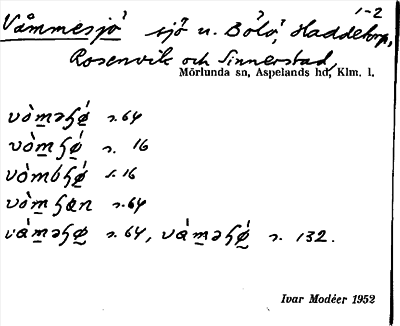 1-2
Våmmesjö sjö u. Bölö, Haddetorp,
Rosenvik och Sinnerstad,
Mörlunda sn, Aspelands hd, Klm. l.
vò̀məɧǿ s. 64
vòmɧǿ s. 16
vòmbɧǿ s. 16
vòmɧøn s. 64
váməɧø s. 64, váməɧǿ s. 132.
Ivar Modéer 1952